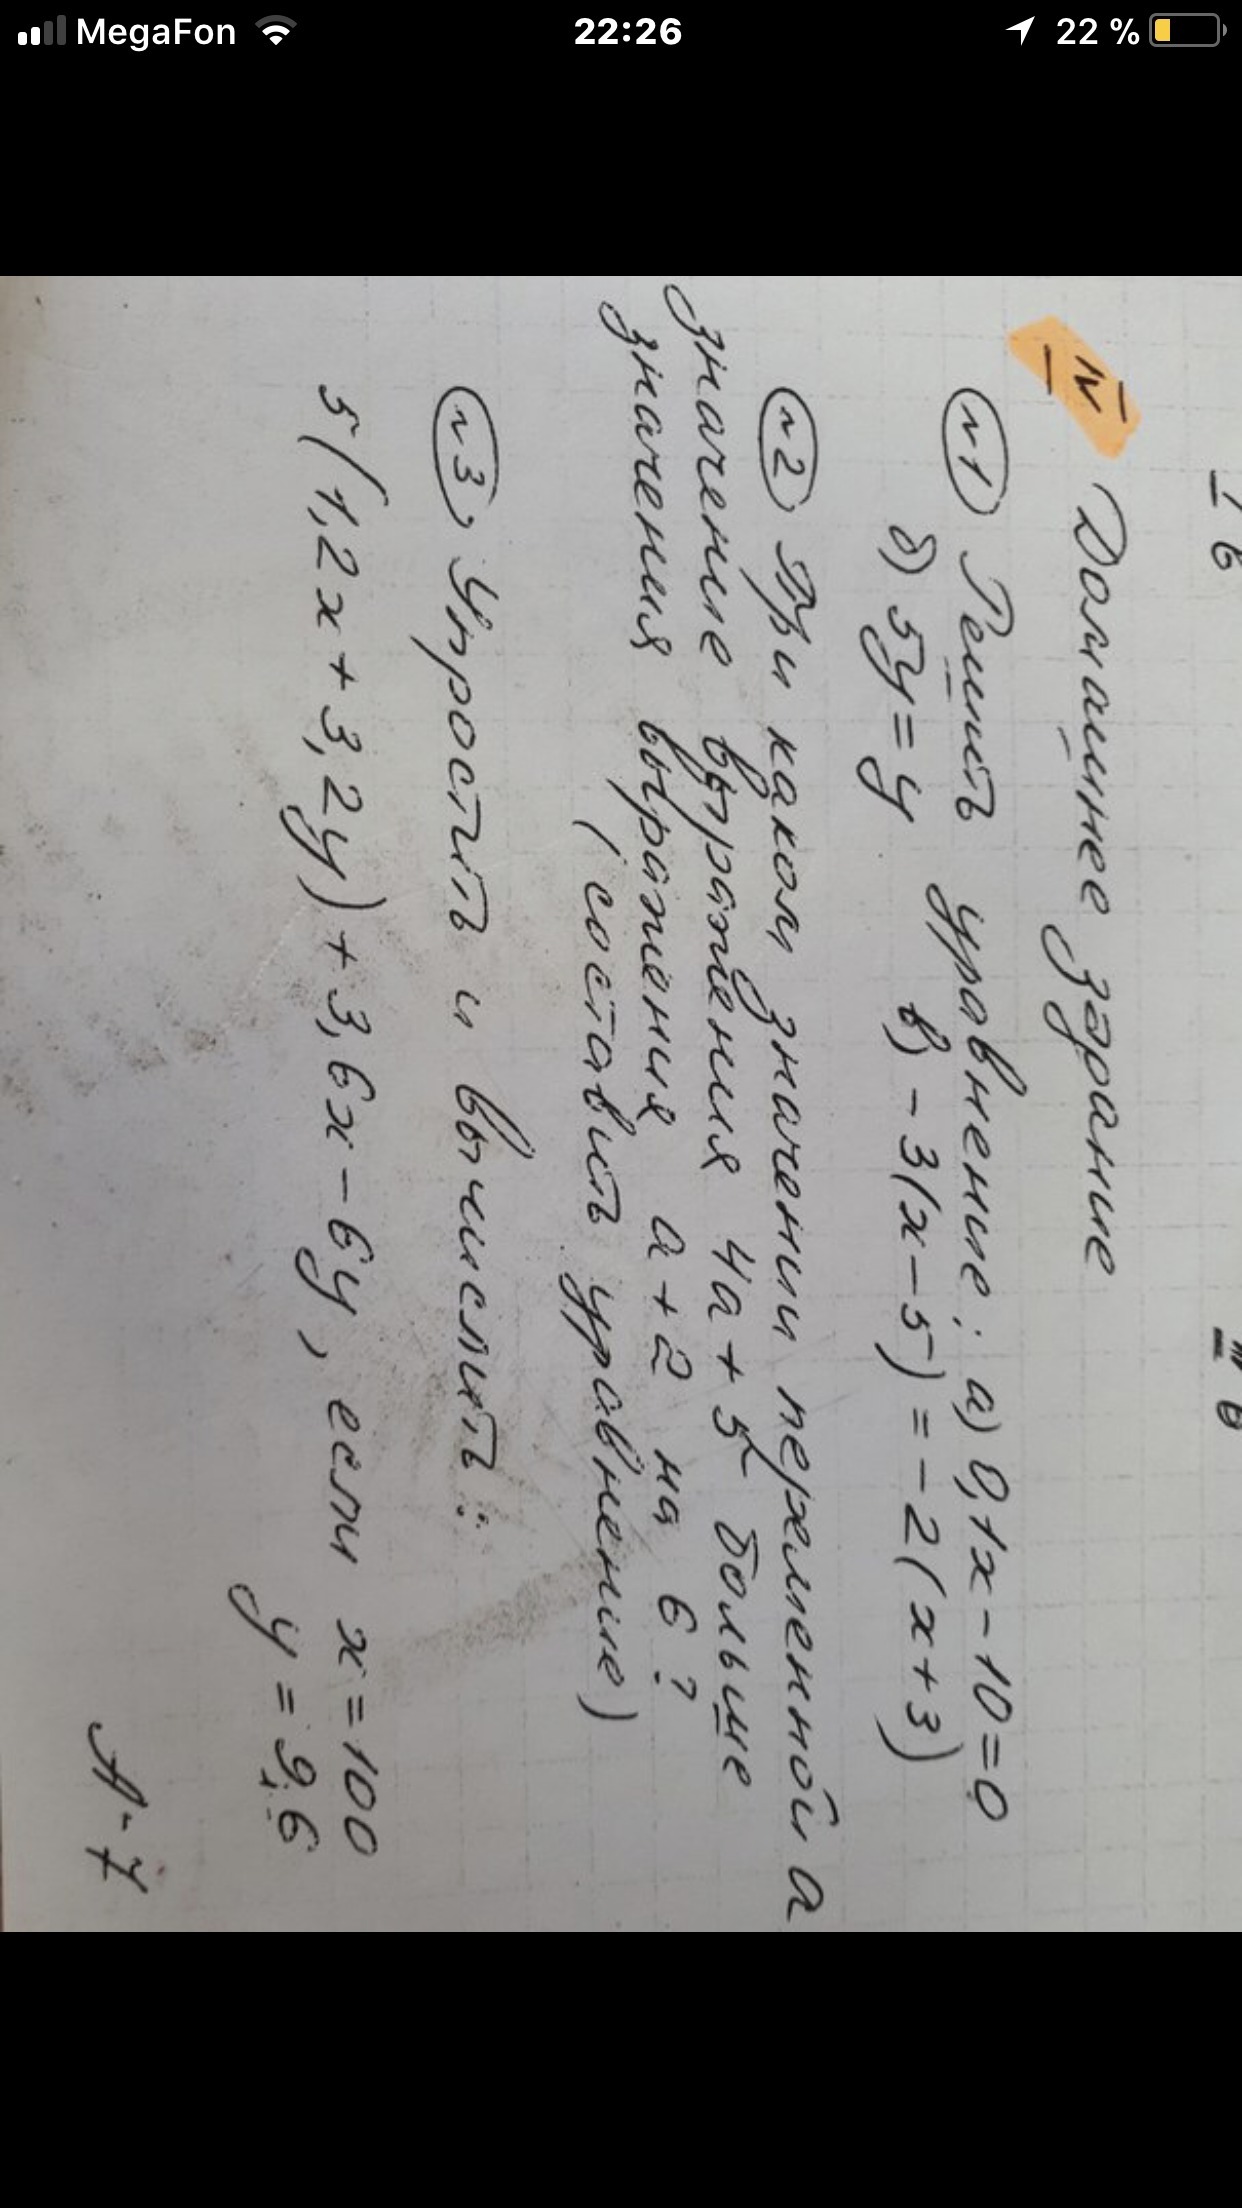 MegaFon 22:26 22 %
I в III в
IV Домашнее задание
№1) Решить уравнение: а) 0,1x - 10 = 0
б) 5y = y в) -3(x - 5) = -2(x + 3)
№2) При каком значении переменной а
значение выражения 4a + 5 больше
значения выражения a + 2 на 6?
(составить уравнение)
№3) Упростить и вычислить:
5(1,2x + 3,2y) + 3,6x - 6y, если x = 100
y = 9,6
А-7